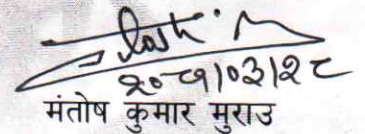 २०८१।०३।२८
मंतोष कुमार मुराउ